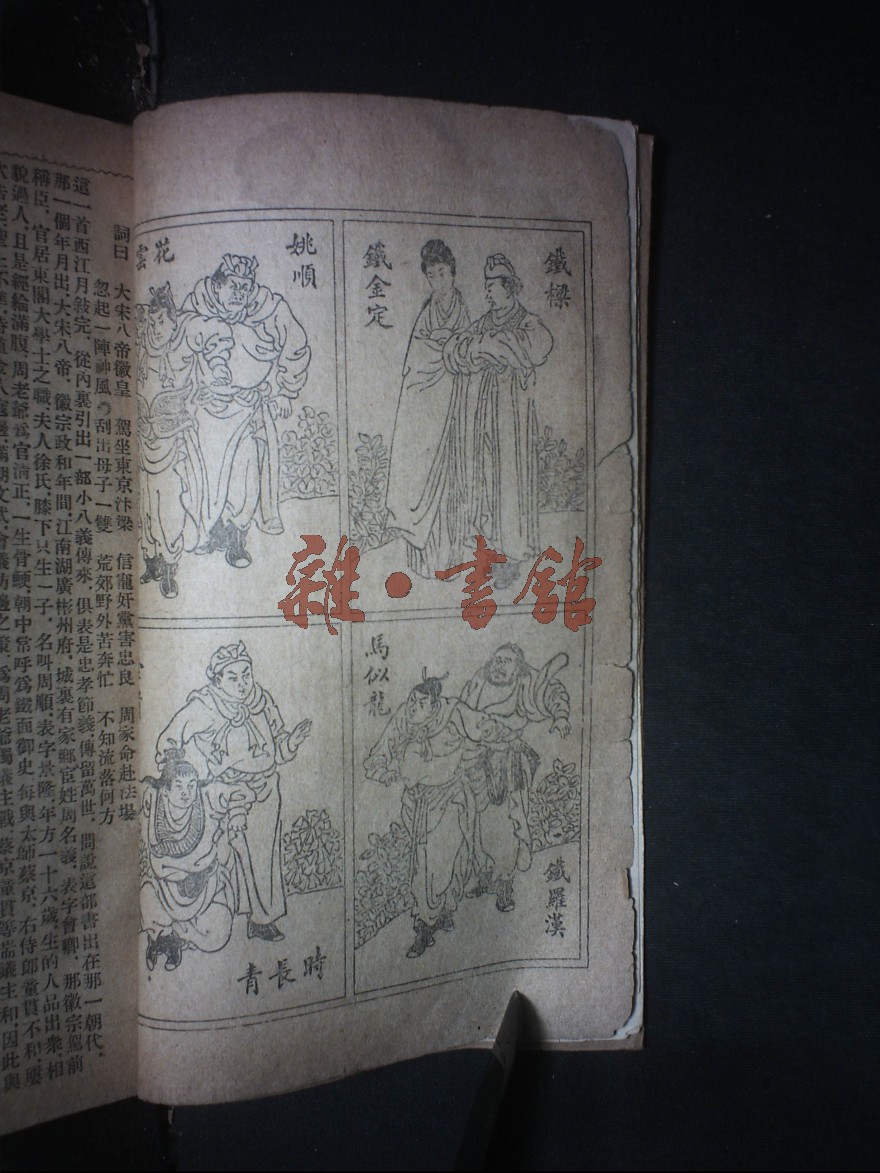 鐵樑
鐵金定
姚順
花雲
馬似龍
鐵羅漢
時長青
詞曰 大宋八帝徽皇 駕坐東京汴梁 信寵奸黨害忠良 周家命赴法場
忽起一陣神風 刮出母子一雙 荒郊野外苦奔忙 不知流落何方
這一首西江月敍完，從內裏引出一部小八義傳來，俱表是忠孝節義，傳留萬世，問說這部書出在那一朝代，
那一個年月出，大宋八帝，徽宗政和年間，江南湖廣彬州府，城裏有家鄉宦姓周名義，表字會卿，那徽宗駕前
稱臣，官居東閣大學士之職，夫人徐氏，膝下只生一子，名叫周順，表字景隆，年方一十六歲，生的人品出衆，相
貌過人，且是經綸滿腹，周老爺爲官清正，一生骨鯁，朝中常呼爲鐵面御史，每與太師蔡京，右侍郎童貫不和，屢
爲周老爺獨議主戰，蔡京童貫等耑議主和，因此與
雜·書館